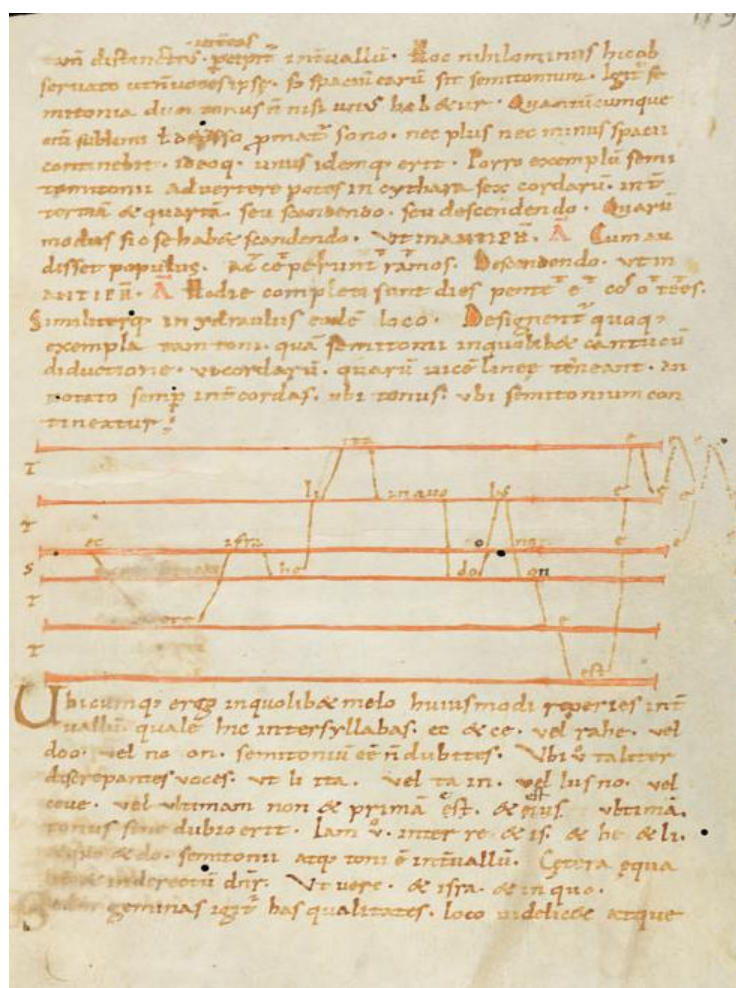 distinctius. percipit̄ int̄uallū. Hoc nihilominus hic ob
seruato utn̄uoces ipsę. sȝ spaciū earū sit semitonium. Igit̄ se
mitonia duo tonus n̄ nisi unꝰ habetur. Quantūcumque
sublimi ł depresso ꝓmat̄ sono. nec plus nec minus spacii
continebit. ideoq; unus idemq; erit. Porro exemplū semi
tonii aduertere potes in cythara sex cordarū. int̄
tertiā & quartā. seu scandendo. seu descendendo. Quarū
modus sic se hab& scandendo. Vt in ANTIPH̄. Ā Cum au
disset populus. Descendendo. vt in
ANTIPH̄. Ā Hodie completi sunt dies pente
Similiterq; in ydraulis eodē loco. Designent̄ quoq;
exempla tam toni. quā semitonii inquolib& cantuū
diductione. vt cordarū. quarū uicē lineę teneant. an
notato semp̄ int̄ cordas. ubi tonus. vbi semitonium con
tineatur;
T
T
S
T
T
ec ce isra he li ta inquo do lus non est
Vbicumq; ergo inquolib& melo huiusmodi reperies int̄
uallū. quale hic inter syllabas. ec & ce. vel ra he. vel
do o. vel no on. semitoniū eē n̄ dubites. Vbi taliter
discrepantes uoces. vt li ta. vel ta in. vel lus no. vel
vel vltimam non & primā est. & eius vltimā.
tonus sine dubio erit. Iam inter re & is. & he & li.
& quo & do. semitonii atq; toni ē int̄uallū. Cętera ęqua
& in derectū dn̄r. Vt uere. & isra. & in quo.
geminas igit̄ has qualitates. loco uidelic& atque